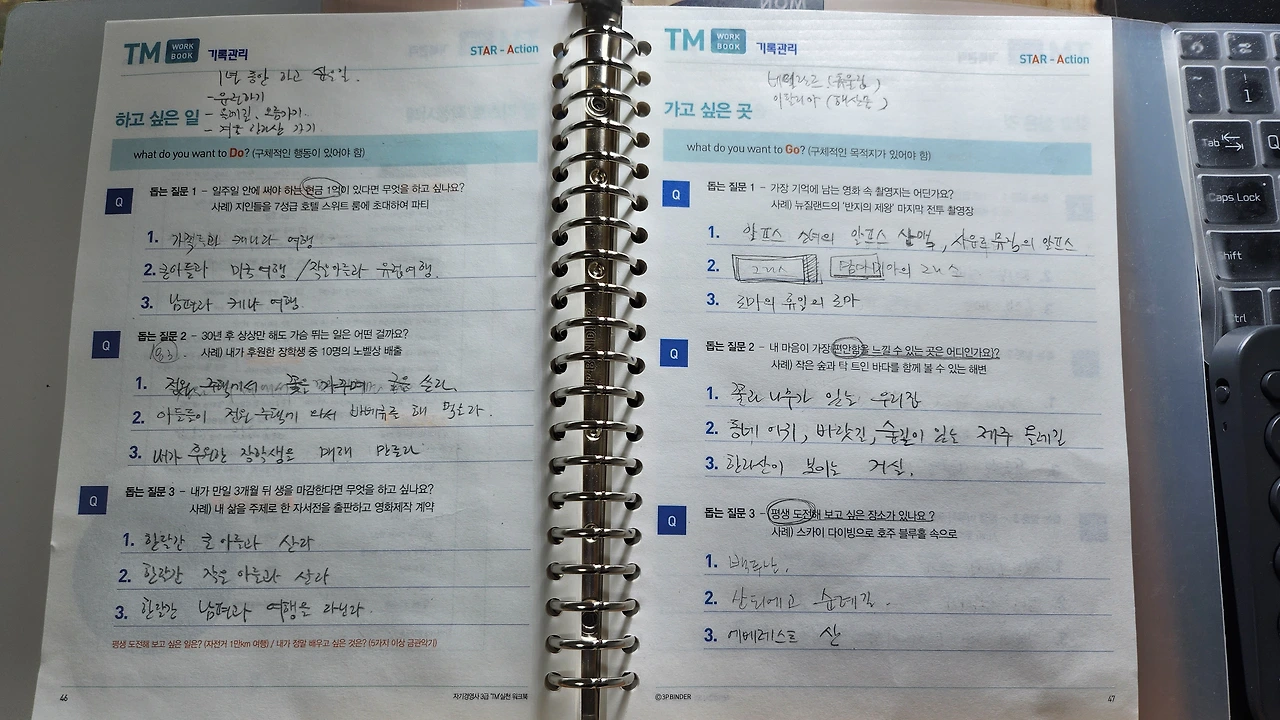 TM WORK BOOK 기록관리
STAR - Action
1년 동안 하고 싶은 일.
- 운전하기
- 올레길, 오름가기.
- 겨울 한라산 가기
하고 싶은 일
what do you want to Do? (구체적인 행동이 있어야 함)
Q 돕는 질문 1 - 일주일 안에 써야 하는 현금 1억이 있다면 무엇을 하고 싶나요?
사례) 지인들을 7성급 호텔 스위트 룸에 초대하여 파티
1. 가족과 캐나다 여행
2. 큰아들과 미국여행 / 작은아들과 유럽여행.
3. 남편과 케냐 여행
Q 돕는 질문 2 - 30년 후 상상만 해도 가슴 뛰는 일은 어떤 걸까요?
사례) 내가 후원한 장학생 중 10명의 노벨상 배출
1. 전원 주택에서 꽃을 가꾸며 글을 쓴다.
2. 아들들이 전원 주택에 와서 바베큐를 해 먹는다.
3. 내가 후원한 장학생을 매해 만난다
Q 돕는 질문 3 - 내가 만일 3개월 뒤 생을 마감한다면 무엇을 하고 싶나요?
사례) 내 삶을 주제로 한 자서전을 출판하고 영화제작 계약
1. 한달간 큰 아들과 산다
2. 한달간 작은 아들과 산다
3. 한달간 남편과 여행을 다닌다.
평생 도전해 보고 싶은 일은? (자전거 1만km 여행) / 내가 정말 배우고 싶은 것은? (5가지 이상 금관악기)
46
자기경영사 3급 TM실천 워크북
TM WORK BOOK 기록관리
STAR - Action
이탈리아 (해산물)
가고 싶은 곳
what do you want to Go? (구체적인 목적지가 있어야 함)
Q 돕는 질문 1 - 가장 기억에 남는 영화 속 촬영지는 어딘가요?
사례) 뉴질랜드의 '반지의 제왕' 마지막 전투 촬영장
1. 알프스 소녀의 알프스 산맥, 사운드 뮤직의 알프스
2. 그리스 맘마미아의 그리스
3. 로마의 휴일의 로마
Q 돕는 질문 2 - 내 마음이 가장 편안함을 느낄 수 있는 곳은 어디인가요)?
사례) 작은 숲과 탁 트인 바다를 함께 볼 수 있는 해변
1. 꽃과 나무가 있는 우리집
2. 동네 어귀, 바닷길, 숲길이 있는 제주 올레길
3. 한라산이 보이는 거실.
Q 돕는 질문 3 - 평생 도전해 보고 싶은 장소가 있나요?
사례) 스카이 다이빙으로 호주 블루홀 속으로
1. 백두산.
2. 산티에고 순례길.
3. 에베레스트 산
©3P BINDER
47
1
Tab
Q
Caps Lock
Shift